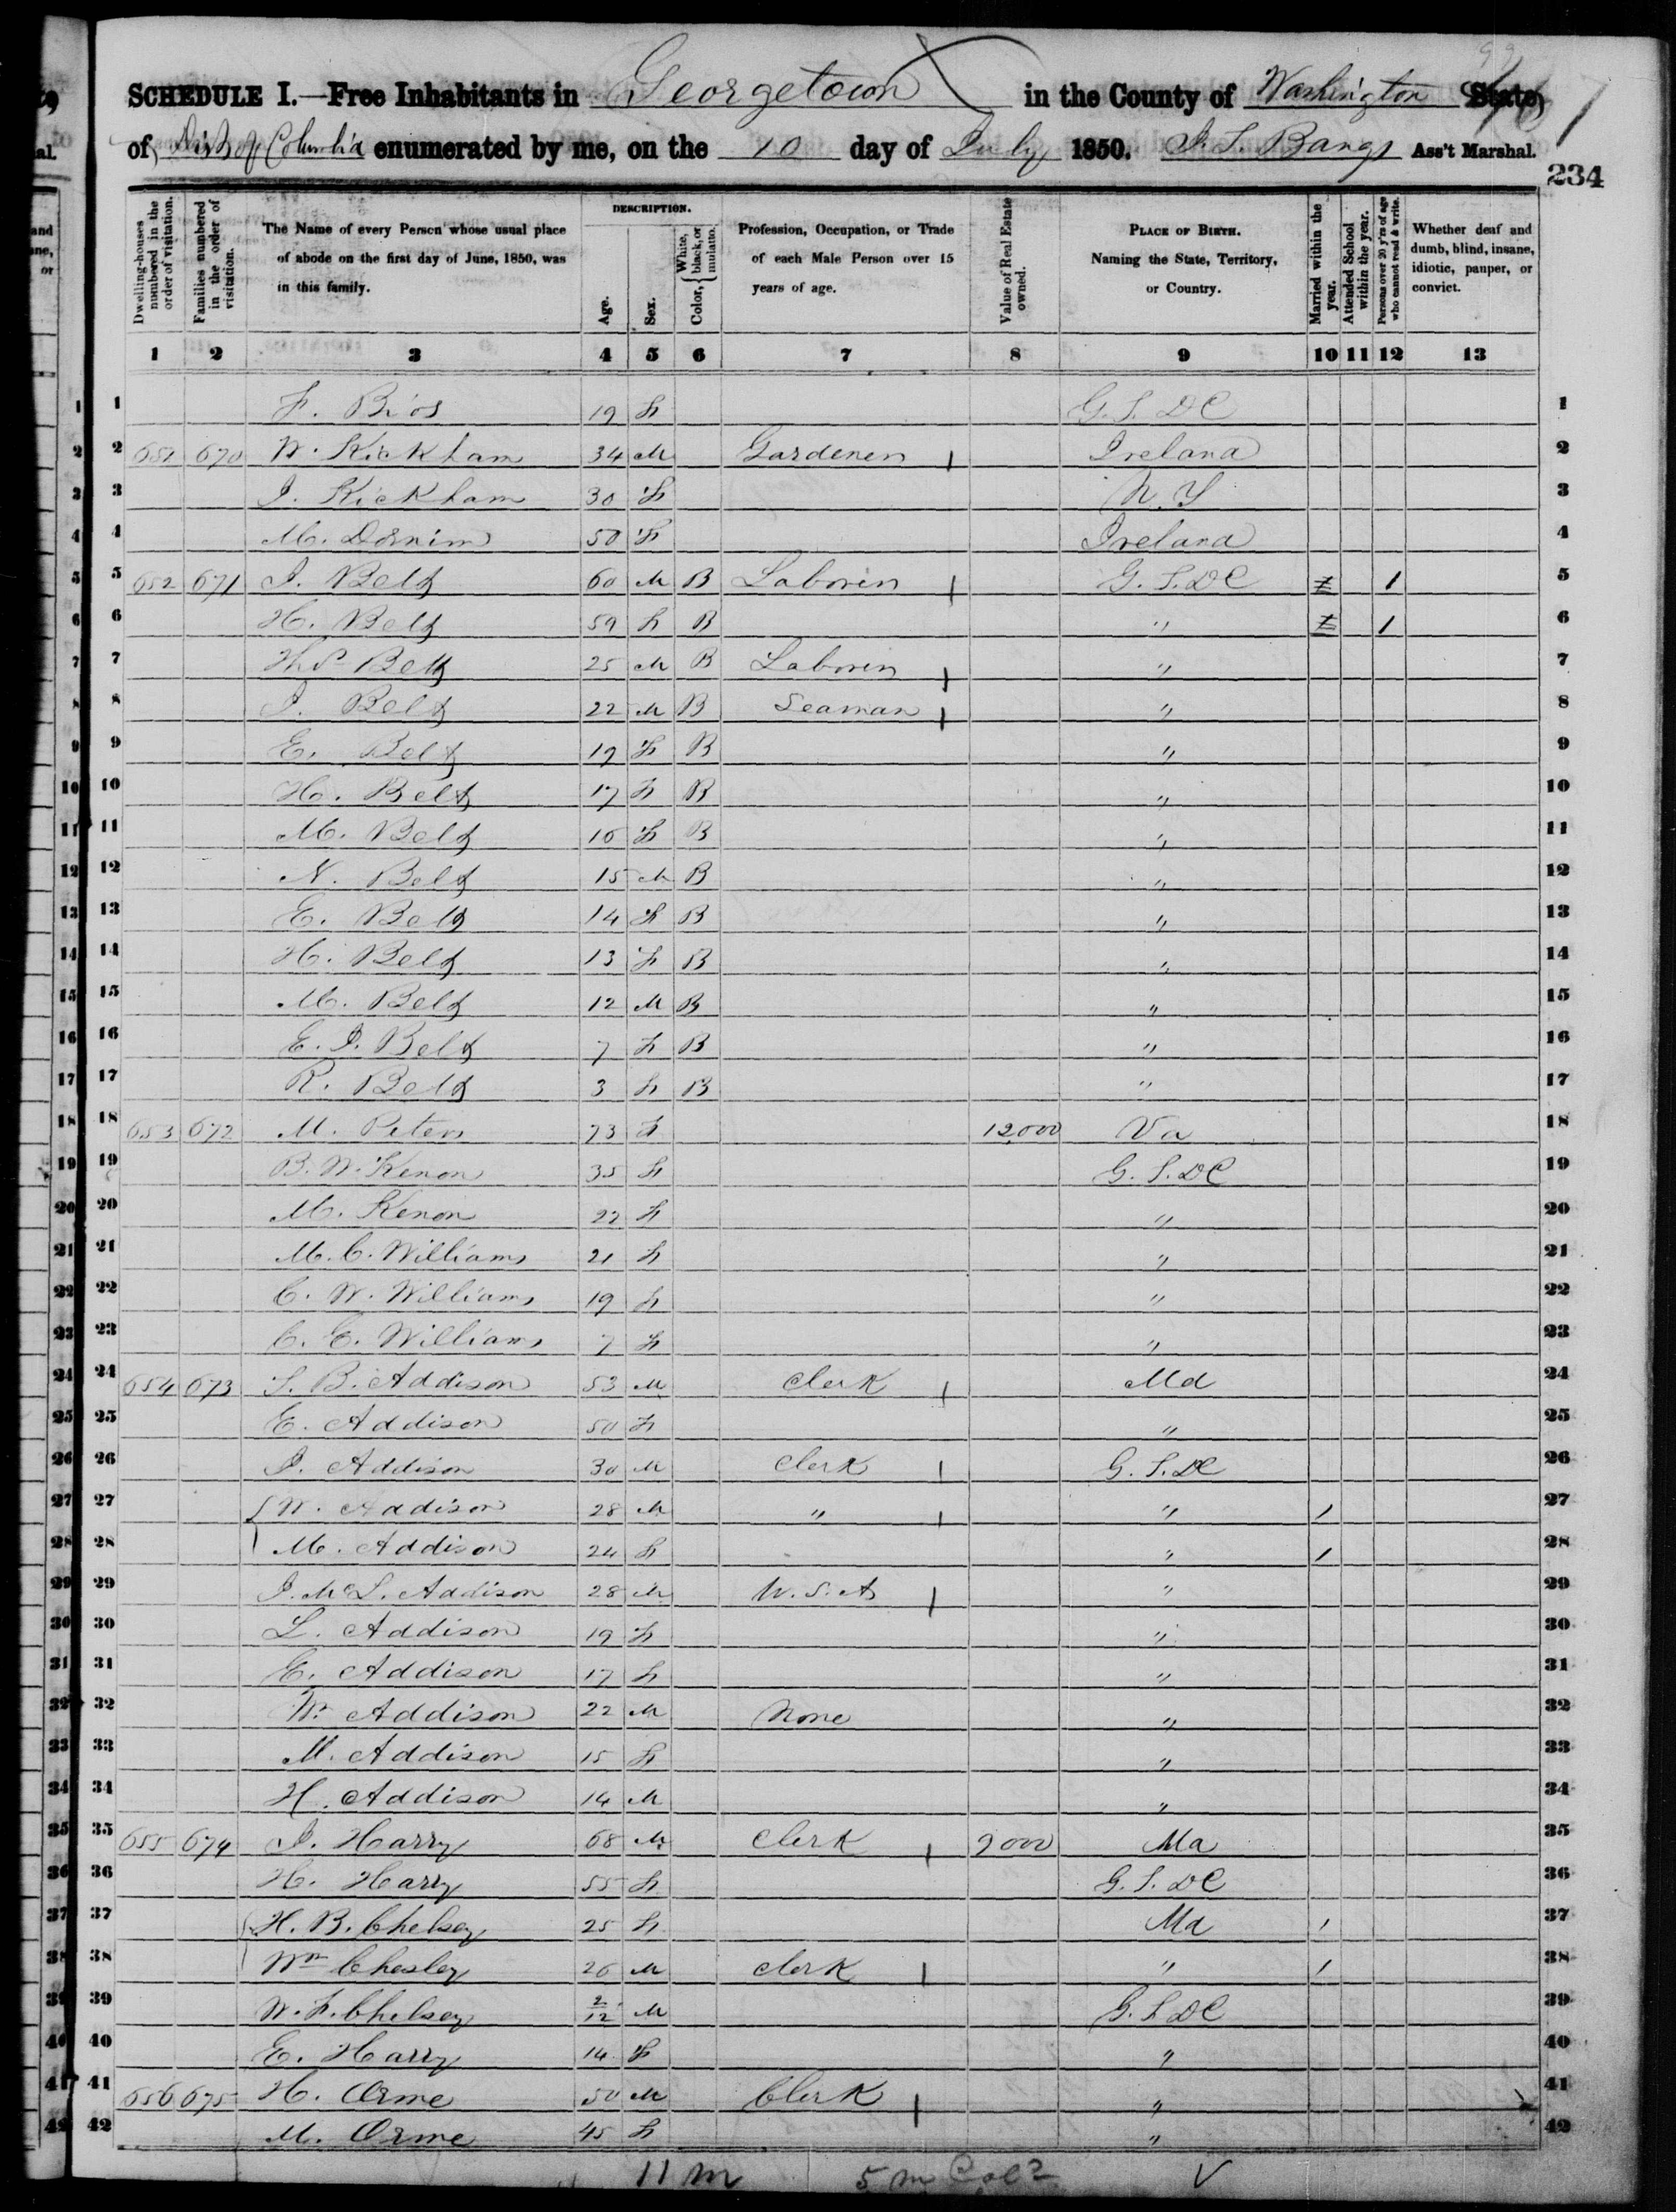 SCHEDULE I.—Free Inhabitants in Georgetown in the County of Washington State
of Dist of Columbia enumerated by me, on the 10 day of July 1850. Bangs Ass't Marshal.
234
Dwelling-houses numbered in the order of visitation.
Families numbered in the order of visitation.
The Name of every Person whose usual place of abode on the first day of June, 1850, was in this family.
DESCRIPTION.
Age.
Sex.
Color, { White, black, or mulatto.
Profession, Occupation, or Trade of each Male Person over 15 years of age.
Value of Real Estate owned.
PLACE OF BIRTH. Naming the State, Territory, or Country.
Married within the year.
Attended School within the year.
Persons over 20 y'rs of age who cannot read & write.
Whether deaf and dumb, blind, insane, idiotic, pauper, or convict.
1 2 3 4 5 6 7 8 9 10 11 12 13
1 F. Bios 19 F G.T. DC 1
2 651 670 W. Kickham 34 M Gardener Ireland 2
3 J. Kickham 30 F N.Y 3
4 M. 50 F Ireland 4
5 652 671 J. Belt 60 M B Laborer G.T. DC 1 5
6 H. Belt 59 F B " 1 6
7 Belt 25 M B Laborer " 7
8 J. Belt 22 M B Seaman " 8
9 E. Belt 19 F B " 9
10 H. Belt 17 F B " 10
11 M. Belt 16 F B " 11
12 N. Belt 15 M B " 12
13 E. Belt 14 F B " 13
14 H. Belt 13 F B " 14
15 M. Belt 12 M B " 15
16 E. J. Belt 7 F B " 16
17 R. Belt 3 F B " 17
18 653 672 M. Peters 73 F 12,000 Va 18
19 B. W. Kenon 35 F G.T. DC 19
20 M. Kenon 22 F " 20
21 M. C. Williams 21 F " 21
22 C. W. Williams 19 F " 22
23 C. E. Williams 7 F " 23
24 654 673 T. B. Addison 53 M Clerk Md 24
25 E. Addison 50 F " 25
26 J. Addison 30 M Clerk G.T. DC 26
27 W. Addison 28 M " " 1 27
28 M. Addison 24 F " 1 28
29 J. McL. Addison 28 M U.S.A " 29
30 L. Addison 19 F " 30
31 E. Addison 17 F " 31
32 W. Addison 22 M None " 32
33 M. Addison 15 F " 33
34 H. Addison 14 M " 34
35 655 674 J. Harry 68 M Clerk 9000 Md 35
36 H. Harry 55 F G.T. DC 36
37 H. B. Chelsey 25 F Md 1 37
38 Wm Chesley 26 M Clerk " 1 38
39 W. F. Chelsey 2/12 M G.T. DC 39
40 E. Harry 14 F " 40
41 656 675 H. Orme 50 M Clerk " 41
42 M. Orme 45 F " 42
11 m 5 m Cold